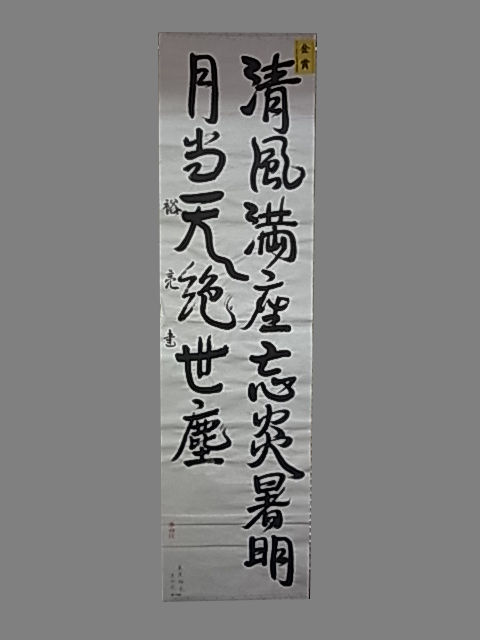 金賞
清風満座忘炎暑明
月当天絶世塵
裕亮書